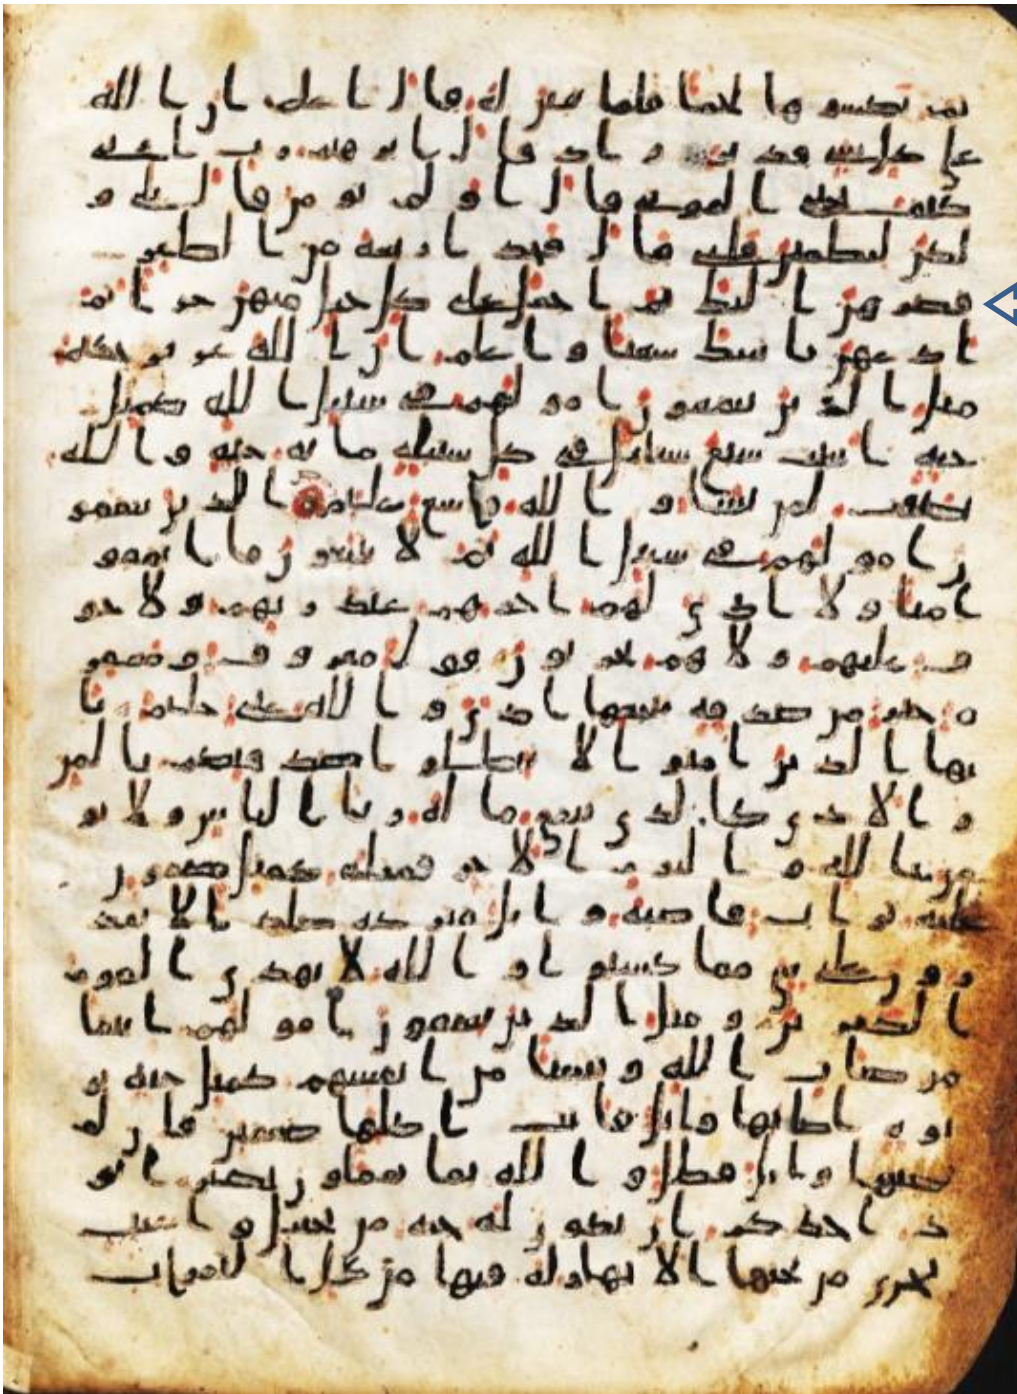 ثم ننشرها لحما فلما تبين له قال اعلم ان الله
على كل شي قدير و اذ قال ابرهيم رب ارني
كيف تحي الموتى قال ا و لم تو من قال بلى و
لكن ليطمئن قلبي قال فخذ ا ربعة من ا لطير
فصر هن ا ليك ثم ا جعل على كل جبل منهن جز ا ثم
ا د عهن يا تينك سعيا و ا علم ا ن ا لله عز يز حكيم
مثل ا لذ ين ينفقو ن ا مو لهم في سبيل ا لله كمثل
حبه ا نبتت سبع سنابل في كل سنبله مايه حبه و ا لله
يضعف لمن يشا و ا لله و سع عليم ا لذ ين ينفقو
ن ا مو لهم في سبيل ا لله ثم لا يتبعو ن ما ا نفقو
ا منا و لا ا ذ ى لهم ا جر هم عند ر بهم و لا خو
ف عليهم و لا هم يحز نو ن قو ل معر و ف و مغفر
ه خير من صد قه يتبعها ا ذ ى و ا لله غني حليم يا
يها ا لذ ين ا منو ا لا تبطلو ا صد قتكم با لمن
و ا لا ذ ى كا لذ ى ينفق ما له ر يا ا لناس و لا يو
من با لله و ا ليو م ا لا خر فمثله كمثل صفو ن
عليه تر ا ب فا صبه و ا بل فتر كه صلد ا لا يقد
ر و ن على شي مما كسبو ا و ا لله لا يهد ي ا لقوم
ا لكفر ين و مثل ا لذ ين ينفقو ن ا مو لهم ا بتغا
مر ضا ت ا لله و تثبيتا من ا نفسهم كمثل جنه بر
بو ه ا صا بها و ا بل فا تت ا كلها ضعفين فا ن لم
يصبها و ا بل فطل و ا لله بما تعملو ن بصير ا يو
د ا حد كم ا ن تكو ن له جنه من نخيل و ا عنب
تجر ي من تحتها ا لا نهر له فيها من كل ا لثمرات